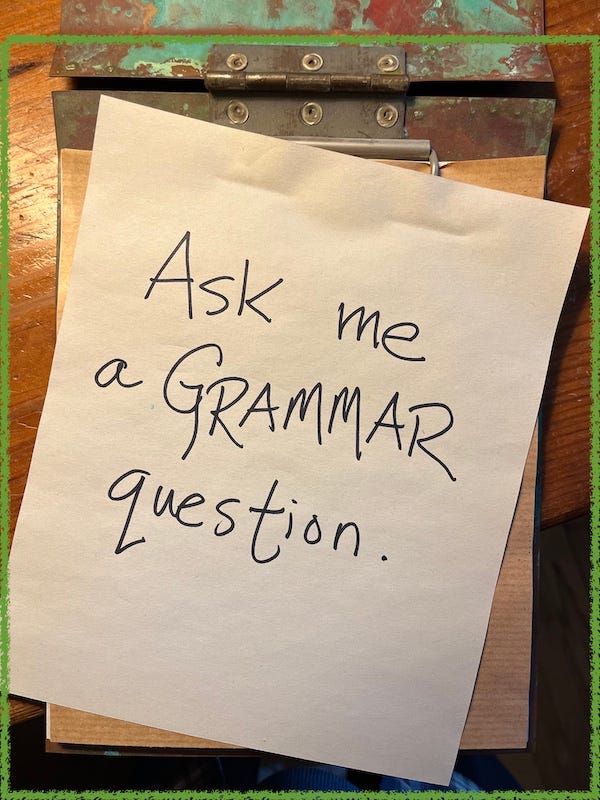 Ask me
a GRAMMAR
question.